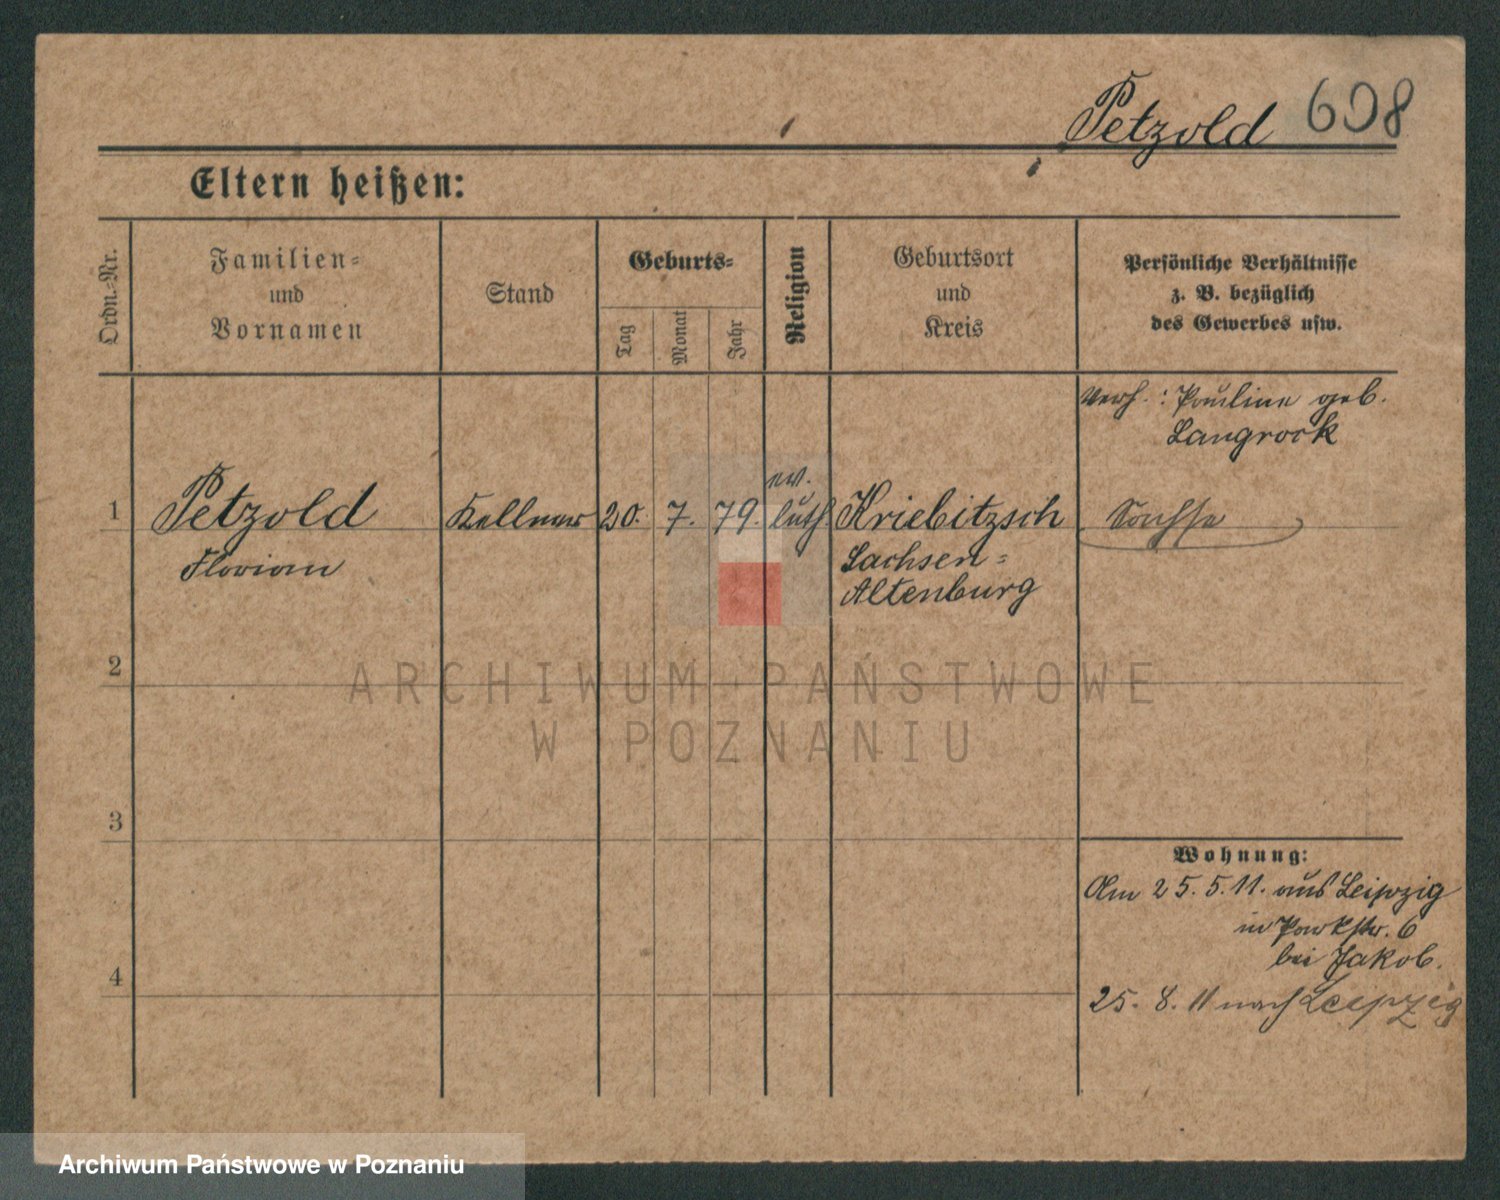 Petzold 698
Eltern heißen:
Ordn.-Nr.
Familien-
und
Vornamen
Stand
Geburts-
Tag
Monat
Jahr
Religion
Geburtsort
und
Kreis
Persönliche Verhältnisse
z. B. bezüglich
des Gewerbes usw.
Verh.: Pauline geb.
Langrock
1 Petzold Kellner 20. 7. 79. ev. luth Kriebitzsch Sachse
Florian Sachsen=
Altenburg
2
ARCHIWUM PAŃSTWOWE
W POZNANIU
3
Wohnung:
Am 25.5.11. aus Leipzig
in Parkstr. 6
bei Jakob.
4
25. 8. 11 nach Leipzig
Archiwum Państwowe w Poznaniu